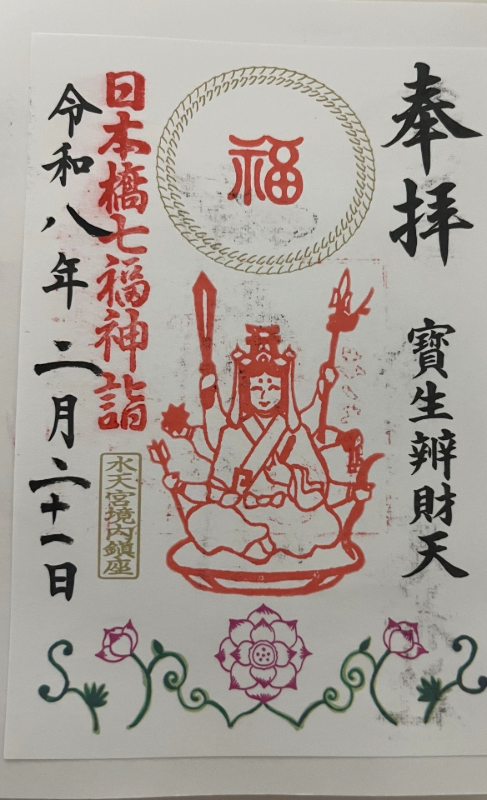 奉拝
寶生辨財天
福
日本橋七福神詣
水天宮境内鎮座
令和八年二月二十一日